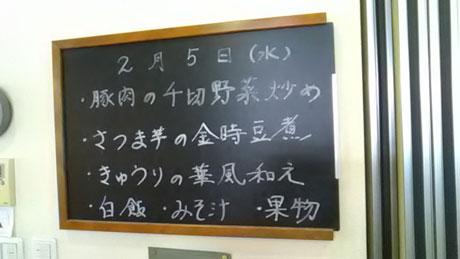 2月5日(水)
・豚肉の千切野菜炒め
・さつま芋の金時豆煮
・きゅうりの華風和え
・白飯 ・みそ汁 ・果物